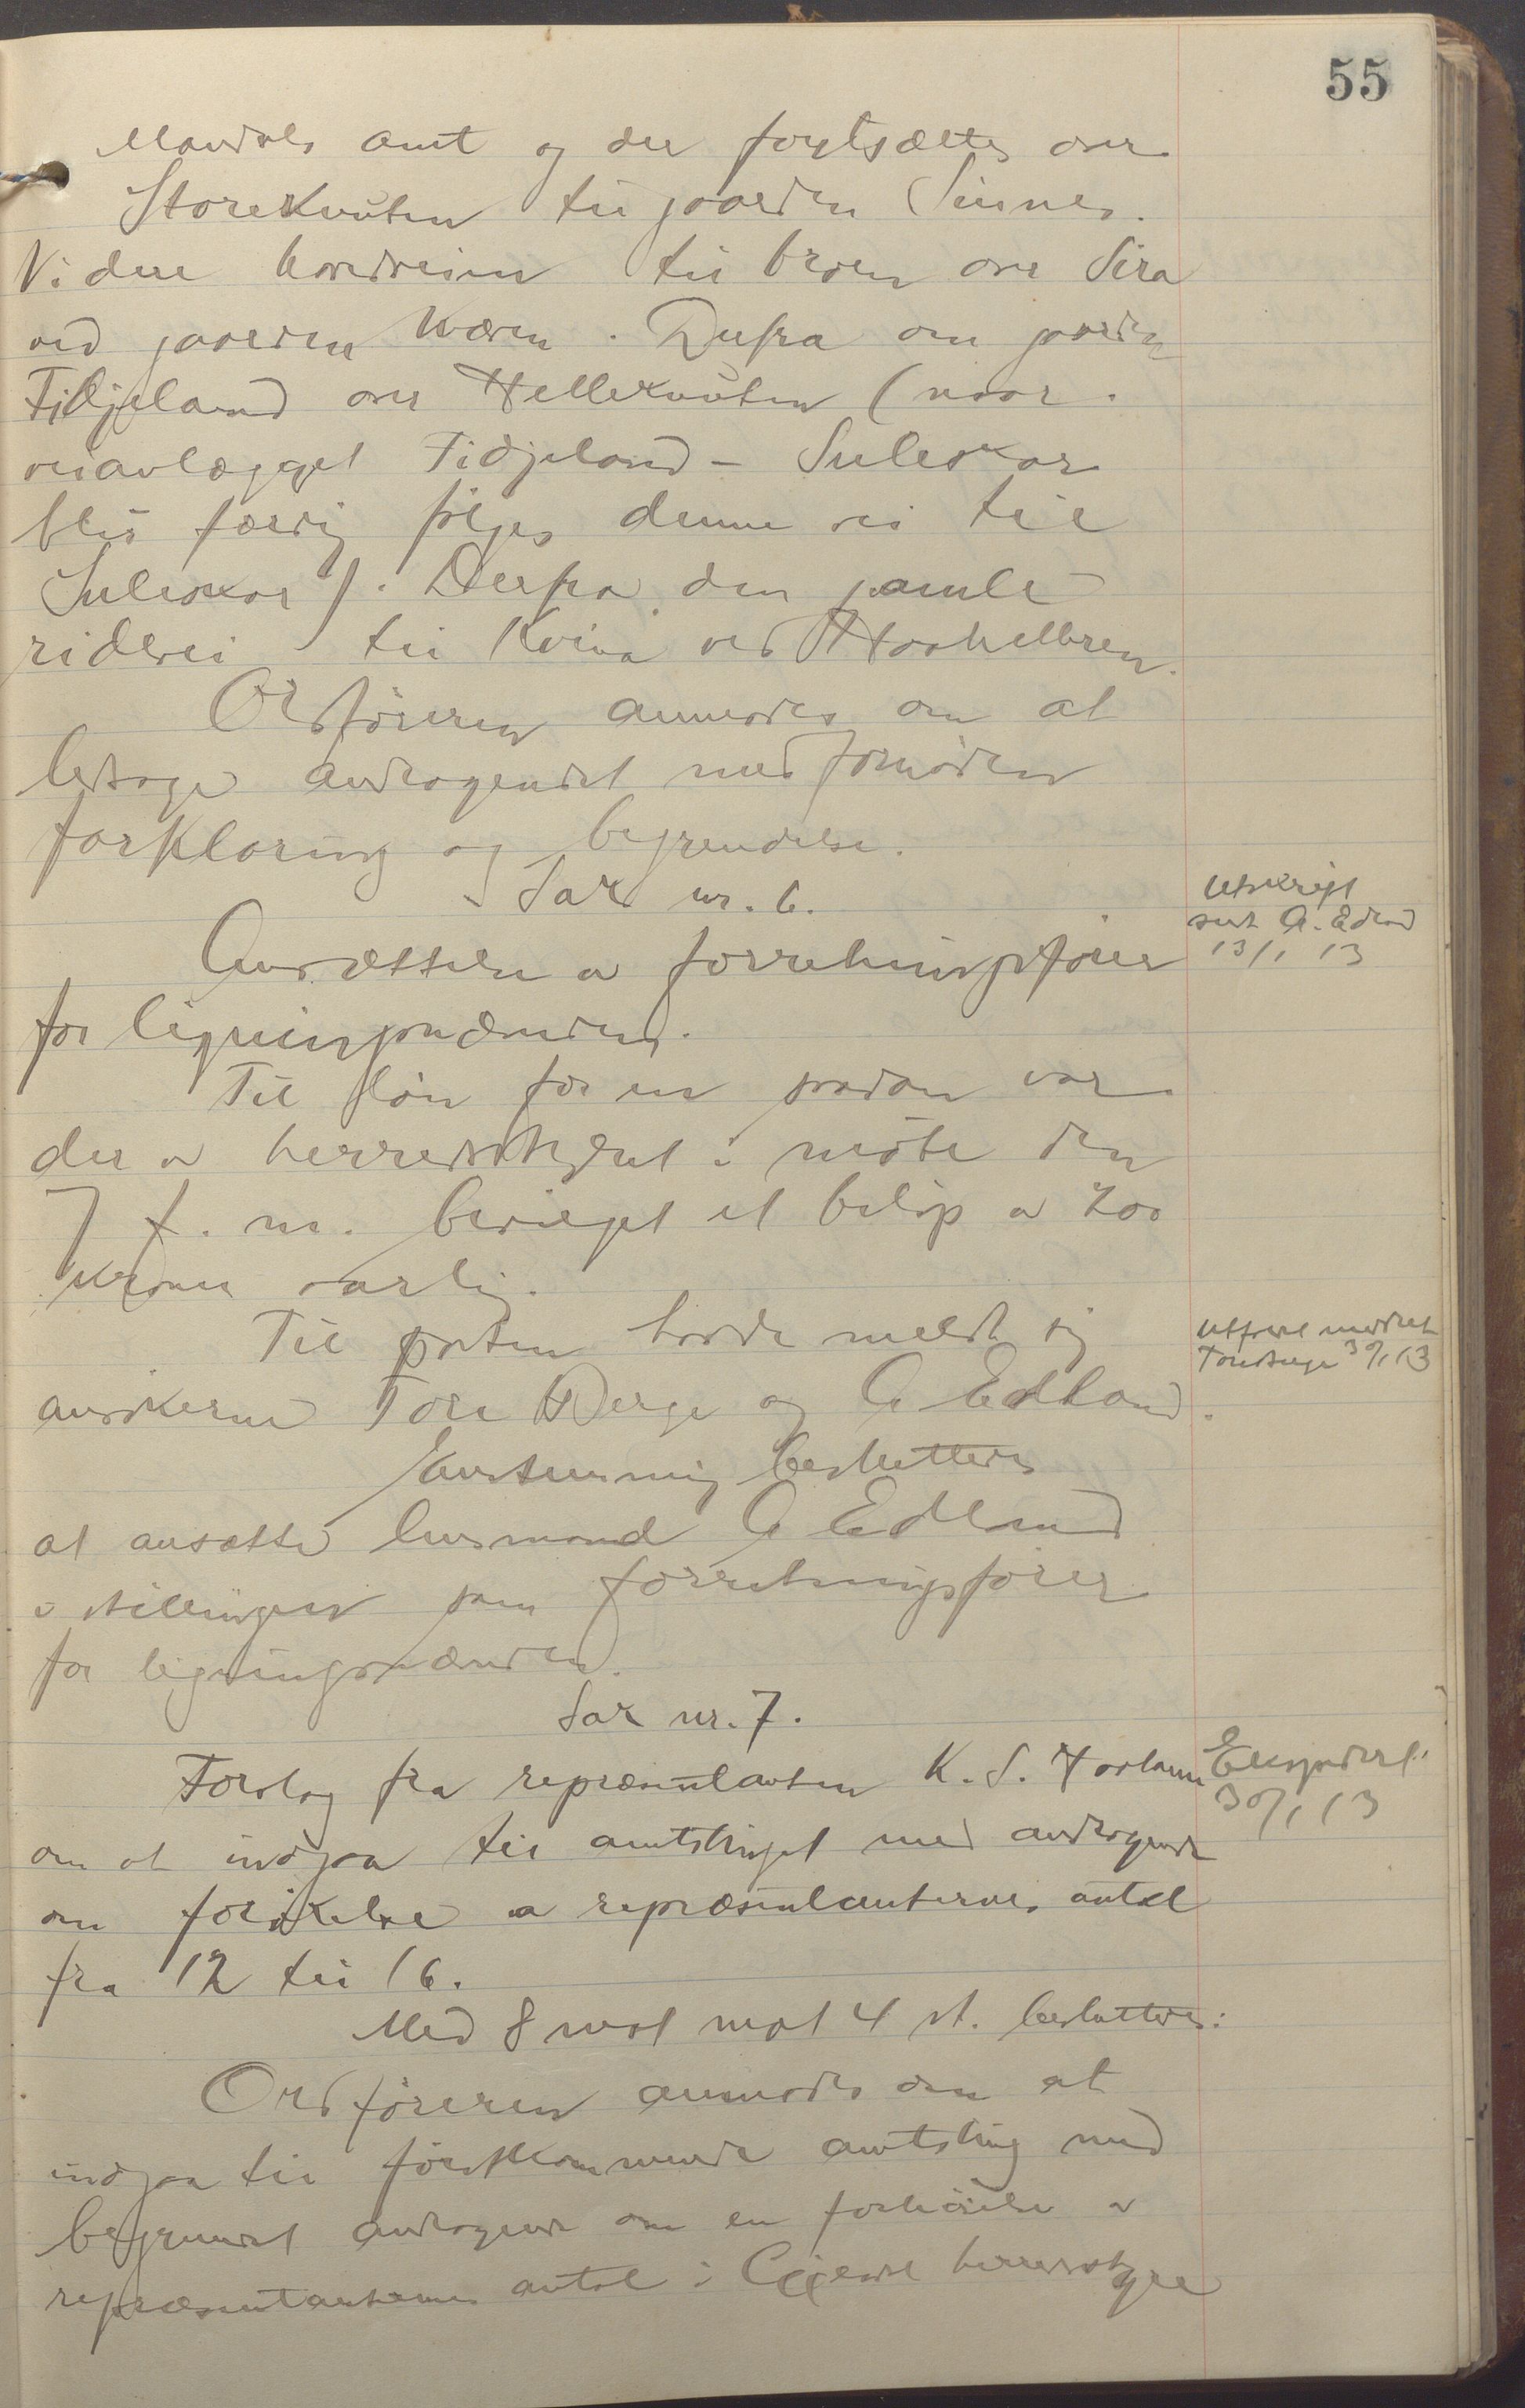 55
Mandals amt og der fortsættes over
Storeknuten til gaarden Sinnes.
Videre hovedveien til broen over Sira
ved gaarden Kvæven. Derfra om gaarden
Fidjeland over Helleknuten (naar
veianlægget Fidjeland - Suleskar
blir færdig følges denne vei til
Suleskar). Derfra den gamle
ridevei til Kvina ved
Ordføreren anmodes om at
ledsage andragendet med fornøden
forklaring og begrundelse.
Sak nr. 6.
Utskrift
sent A. Edland
13/1 13
Ansættelse av forretningsfører
for ligningsnævnden.
Til løn for en saadan var
der av herredsstyret i møte den
7 f. m. bevilget et beløp av 200
kroner aarlig.
Til posten hadde meldt sig
Utført meddelt
30/1 13
ansøkerne Tore Berge og A Edland.
Enstemmig besluttedes
at ansætte lensmand A Edland
i stillingen som forretningsfører
for ligningsnævnden.
Sak nr. 7.
Forslag fra repræsentanten K. S.
Ekspedert
30/1 13
om at indgaa til amtstinget med andragende
om forøkelse av repræsentanternes antal
fra 12 til 16.
Med 8 mot 4 st. besluttedes:
Ordføreren anmodes om at
indgaa til førstkommende amtsting med
begrundet andragende om en forhøielse av
repræsentanternes antal i Gjesdal herredsstyre